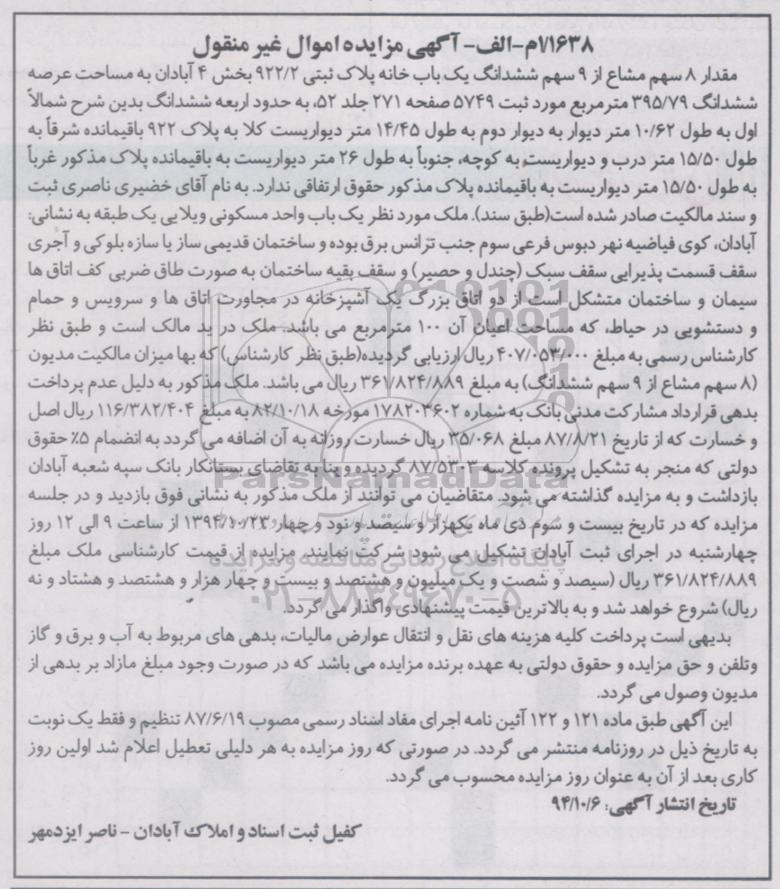 ۱/۱۶۳۸م-الف- آگهی مزایده اموال غیر منقول
مقدار ۸ سهم مشاع از ۹ سهم ششدانگ یک باب خانه پلاک ثبتی ۹۲۲/۲ بخش ۴ آبادان به مساحت عرصه
ششدانگ ۳۹۵/۷۹ مترمربع مورد ثبت ۵۷۴۹ صفحه ۲۷۱ جلد ۵۲، به حدود اربعه ششدانگ بدین شرح شمالاً
اول به طول ۱۰/۶۲ متر دیوار به دیوار دوم به طول ۱۴/۴۵ متر دیواریست کلا به پلاک ۹۲۲ باقیمانده شرقاً به
طول ۱۵/۵۰ متر درب و دیواریست به کوچه، جنوباً به طول ۲۶ متر دیواریست به باقیمانده پلاک مذکور غرباً
به طول ۱۵/۵۰ متر دیواریست به باقیمانده پلاک مذکور حقوق ارتفاقی ندارد. به نام آقای خضیری ناصری ثبت
و سند مالکیت صادر شده است(طبق سند). ملک مورد نظر یک باب واحد مسکونی ویلایی یک طبقه به نشانی:
آبادان، کوی فیاضیه نهر دبوس فرعی سوم جنب ترانس برق بوده و ساختمان قدیمی ساز با سازه بلوکی و آجری
سقف قسمت پذیرایی سقف سبک (چندل و حصیر) و سقف بقیه ساختمان به صورت طاق ضربی کف اتاق ها
سیمان و ساختمان متشکل است از دو اتاق بزرگ یک آشپزخانه در مجاورت اتاق ها و سرویس و حمام
و دستشویی در حیاط، که مساحت اعیان آن ۱۰۰ مترمربع می باشد. ملک در ید مالک است و طبق نظر
کارشناس رسمی به مبلغ ۴۰۷/۰۵۳/۰۰۰ ریال ارزیابی گردیده(طبق نظر کارشناس) که بها میزان مالکیت مدیون
(۸ سهم مشاع از ۹ سهم ششدانگ) به مبلغ ۳۶۱/۸۲۴/۸۸۹ ریال می باشد. ملک مذکور به دلیل عدم پرداخت
بدهی قرارداد مشارکت مدنی بانک به شماره ۱۷۸۲۰۳۶۰۲ مورخه ۸۲/۱۰/۱۸ به مبلغ ۱۱۶/۳۸۲/۴۰۴ ریال اصل
و خسارت که از تاریخ ۸۷/۸/۲۱ مبلغ ۳۵/۰۶۸ ریال خسارت روزانه به آن اضافه می گردد به انضمام ۵٪ حقوق
دولتی که منجر به تشکیل پرونده کلاسه ۸۷/۵۳۰۳ گردیده و بنا به تقاضای بستانکار بانک سپه شعبه آبادان
بازداشت و به مزایده گذاشته می شود. متقاضیان می توانند از ملک مذکور به نشانی فوق بازدید و در جلسه
مزایده که در تاریخ بیست و سوم دی ماه یکهزار و سیصد و نود و چهار ۱۳۹۴/۱۰/۲۳ از ساعت ۹ الی ۱۲ روز
چهارشنبه در اجرای ثبت آبادان تشکیل می شود شرکت نمایند. مزایده از قیمت کارشناسی ملک مبلغ
۳۶۱/۸۲۴/۸۸۹ ریال (سیصد و شصت و یک میلیون و هشتصد و بیست و چهار هزار و هشتصد و هشتاد و نه
ریال) شروع خواهد شد و به بالاترین قیمت پیشنهادی واگذار می گردد.
بدیهی است پرداخت کلیه هزینه های نقل و انتقال عوارض مالیات، بدهی های مربوط به آب و برق و گاز
وتلفن و حق مزایده و حقوق دولتی به عهده برنده مزایده می باشد که در صورت وجود مبلغ مازاد بر بدهی از
مدیون وصول می گردد.
این آگهی طبق ماده ۱۲۱ و ۱۲۲ آئین نامه اجرای مفاد اسناد رسمی مصوب ۸۷/۶/۱۹ تنظیم و فقط یک نوبت
به تاریخ ذیل در روزنامه منتشر می گردد. در صورتی که روز مزایده به هر دلیلی تعطیل اعلام شد اولین روز
کاری بعد از آن به عنوان روز مزایده محسوب می گردد.
تاریخ انتشار آگهی: ۹۴/۱۰/۶
کفیل ثبت اسناد و املاک آبادان - ناصر ایزدمهر
ParsNamadData
پایگاه اطلاع رسانی مناقصه و مزایده
۰۲۱-۸۸۳۴۹۶۷۰-۵